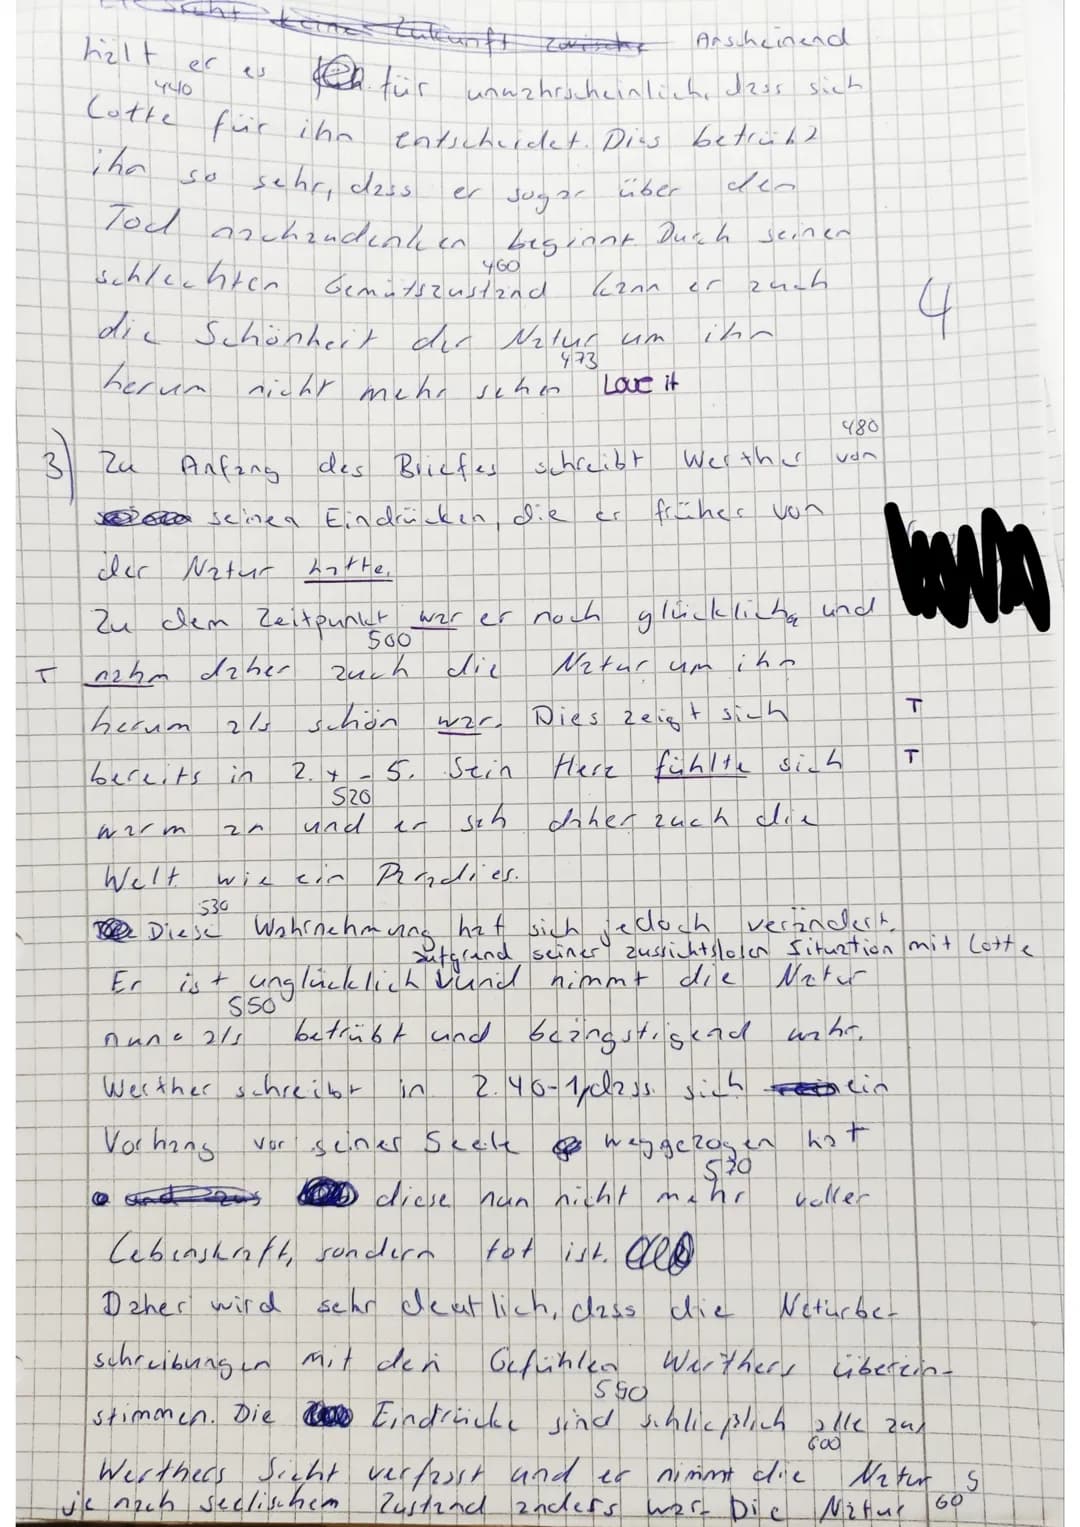 keine Zukunft Anscheinend
hält er es für unwahrscheinlich, dass sich
440
Lotte für ihn entscheidet. Dies betrübt
ihn so sehr, dass er sogar über den
Tod nachzudenken beginnt Durch seinen
460
schlechten Gemütszustand kann er auch
4
die Schönheit der Natur um ihn
473
herum nicht mehr sehen Love it
480
3) Zu Anfang des Briefes schreibt Werther von
seinen Eindrücken, die er früher von
der Natur hatte.
Zu dem Zeitpunkt war er noch glücklich und
500
T nahm daher auch die Natur um ihn
herum als schön war. Dies zeigt sich T
bereits in Z. 4 - 5. Sein Herz fühlte sich T
520
warm an und er sah daher auch die
Welt wie ein Paradies.
530
Diese Wahrnehmung hat sich jedoch verändert.
aufgrund seiner aussichtslosen Situation mit Lotte
Er ist unglücklich und nimmt die Natur
550
nun als betrübt und beängstigend wahr.
Werther schreibt in Z. 40-1, dass sich ein
Vorhang vor seiner Seele weggezogen hat
570
diese nun nicht mehr voller
Lebenskraft, sondern tot ist.
Daher wird sehr deutlich, dass die Naturbe-
schreibungen mit den Gefühlen Werthers überein-
590
stimmen. Die Eindrücke sind schließlich alle aus
600
Werthers Sicht verfasst und er nimmt die Natur 5
je nach seelischem Zustand anders war. Die Natur 60